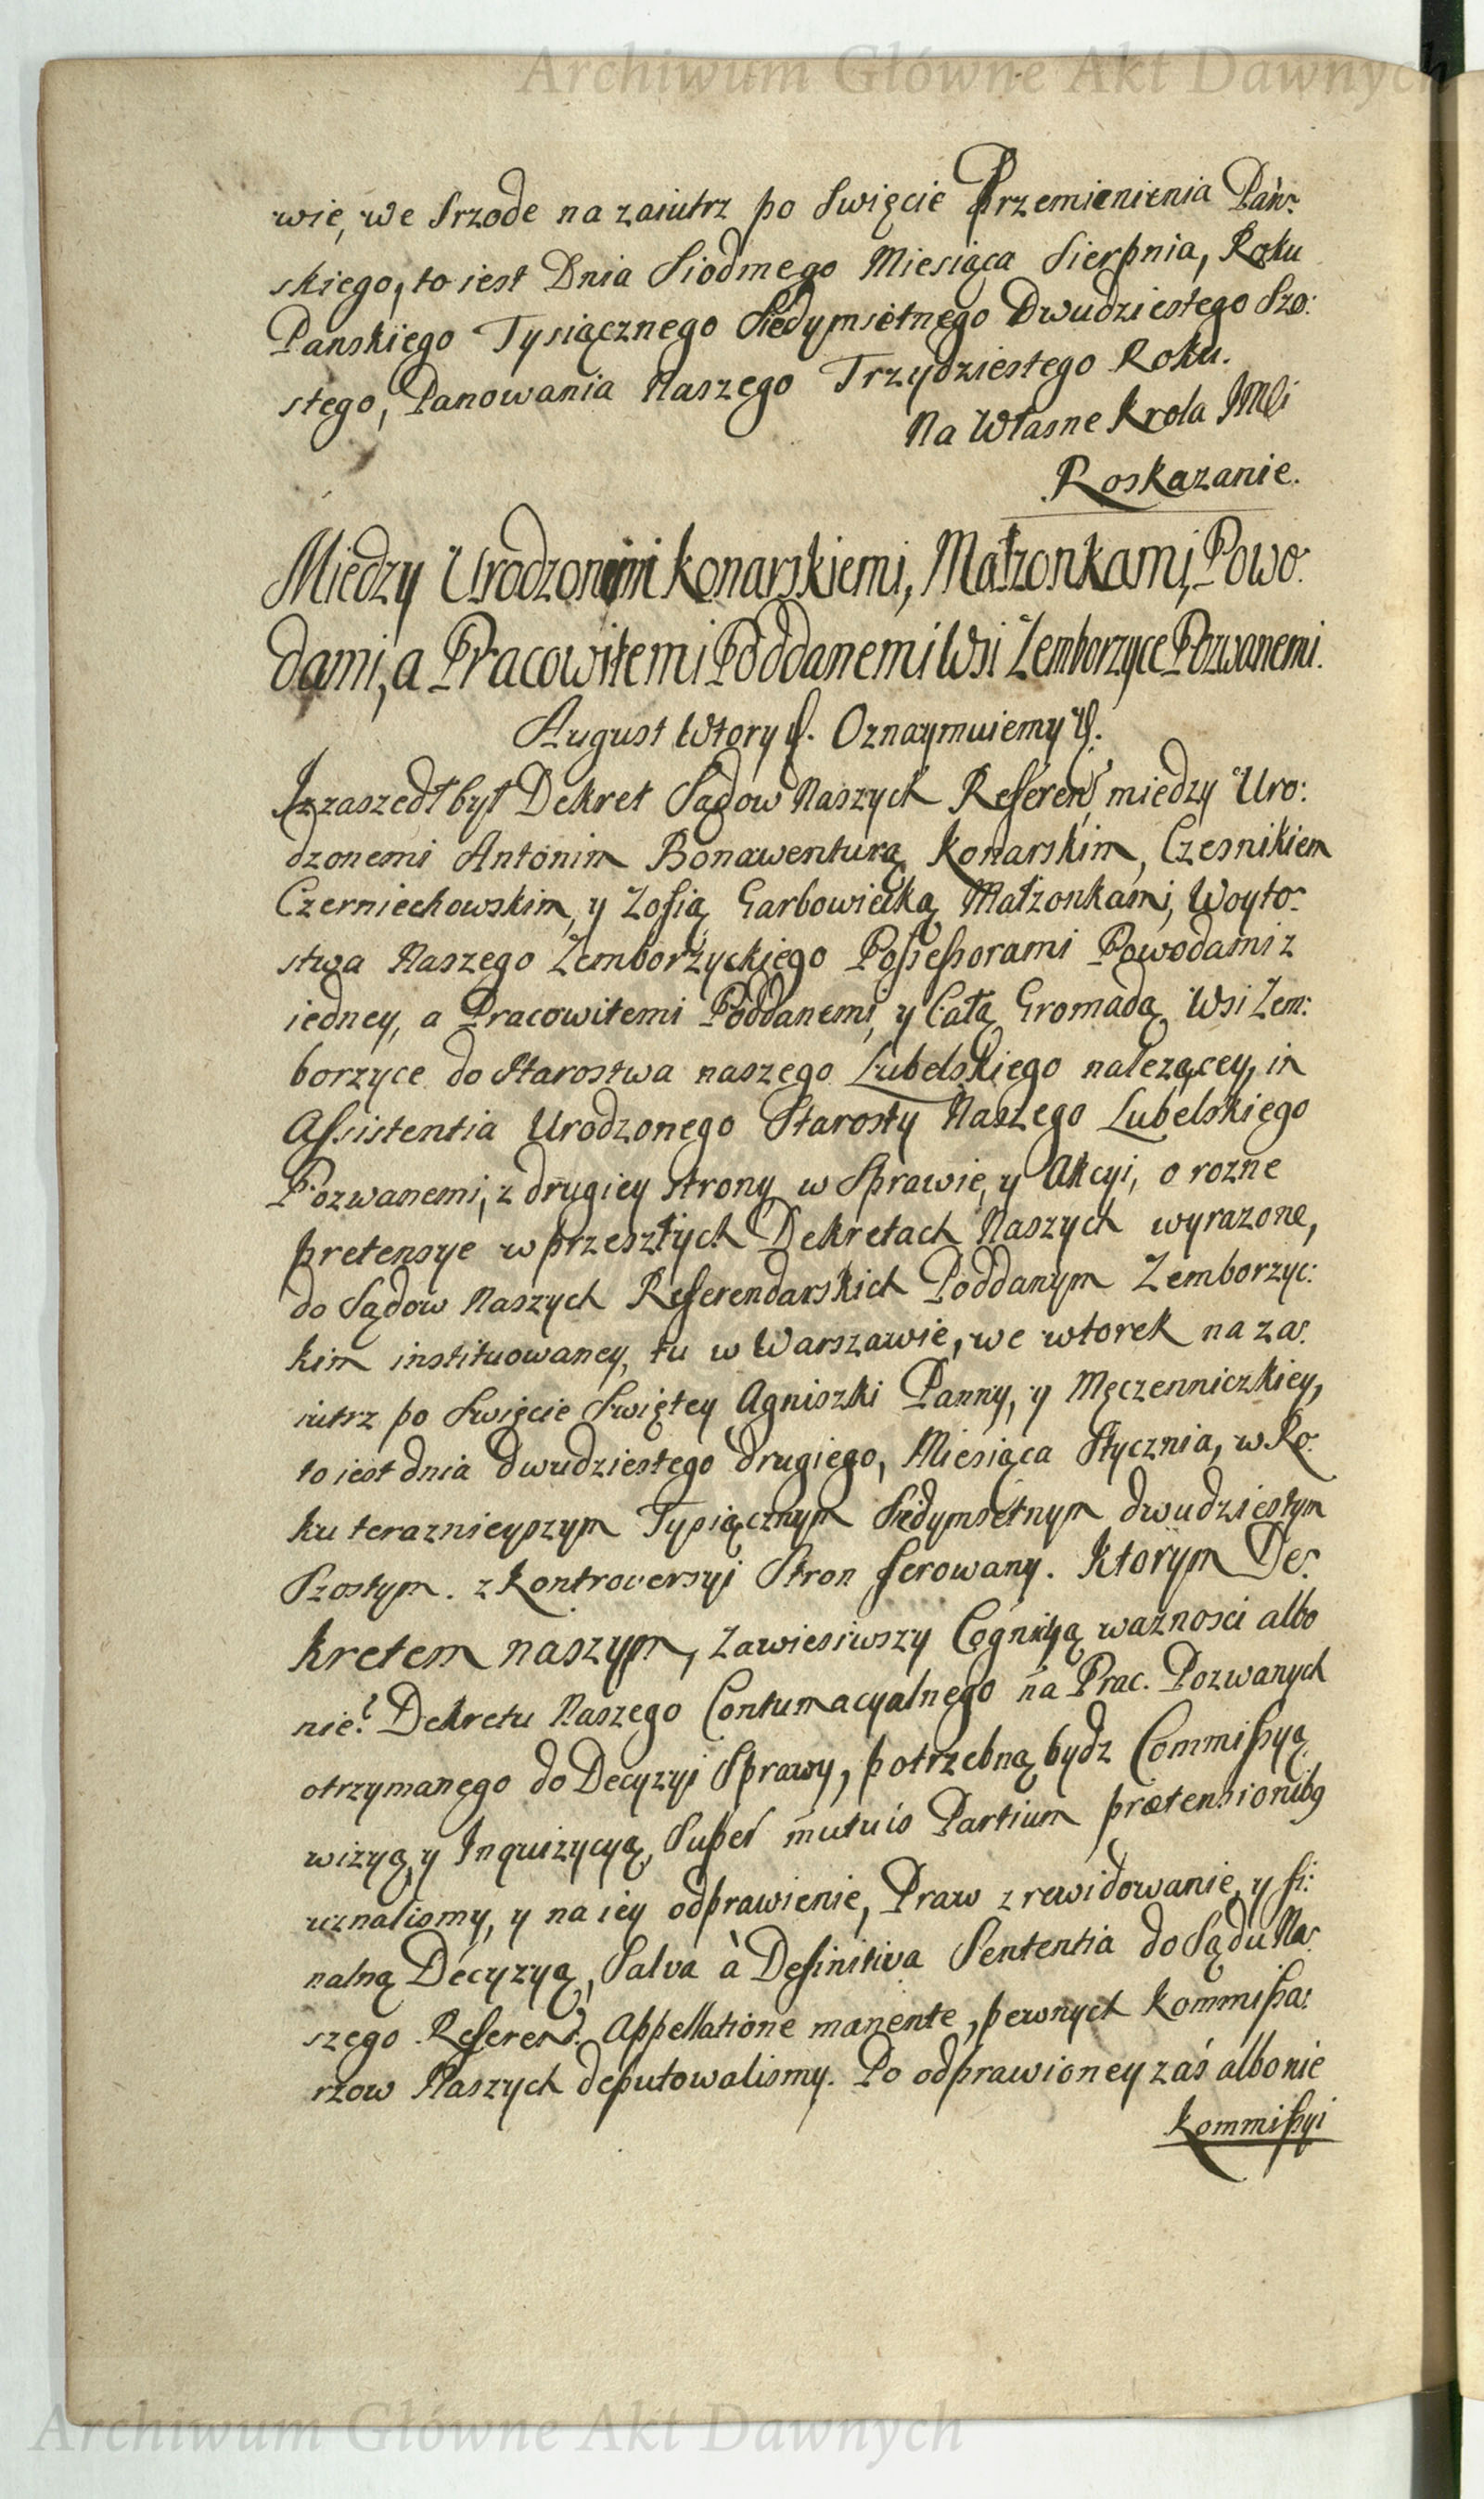 Archiwum Główne Akt Dawnych
wie, we Srzode na zaiutrz po Swięcie Przemienienia Pań:
skiego, to iest Dnia Siodmego Miesiąca Sierpnia, Roku
Panskiego Tysiącznego Siedymsetnego Dwudziestego Szo:
stego, Panowania Naszego Trzydziestego Roku.
Na Własne Krola JMCi
Roskazanie.
Miedzy Urodzonemi Konarskiemi, Małzonkami, Powo:
dami, a Pracowitemi Poddanemi Wsi Zemborzyce Pozwanemi.
August Wtory &. Oznaymuiemy &.
Iz zaszedł był Dekret Sądow Naszych Referen: miedzy Uro:
dzonemi Antonim Bonawenturą Konarskim, Czesnikiem
Czerniechowskim, y Zofią Garbowiecką Małzonkami, Woyto:
stwa Naszego Zemborzyckiego Possessorami Powodami z
iedney, a Pracowitemi Poddanemi, y Całą Gromadą Wsi Zem:
borzyce do Starostwa naszego Lubelskiego nalezącey, in
Assistentia Urodzonego Starosty Naszego Lubelskiego
Pozwanemi, z drugiey strony w Sprawie, y Akcyi, o rozne
pretensye w przeszłych Dekretach Naszych wyrazone,
do Sądow Naszych Referendarskich Poddanym Zemborzyc:
kim instituowaney, tu w Warszawie, we wtorek na za:
iutrz po Swięcie Swiętey Agniszki Panny, y Męczenniczkiey,
to iest dnia dwudziestego drugiego, Miesiąca Stycznia, w Ro:
ku teraznieyszym Tysiącznym Siedymsetnym dwudziestym
Szostym. z Kontroversyi Stron ferowany. Ktorym De:
kretem naszym, Zawiesiwszy Cognicyą waznosci albo
nie? Dekretu Naszego Contumacyalnego na Prac. Pozwanych
otrzymanego do Decyzyi Sprawy, potrzebną bydz Commissyą
wizyą, y Inquizycyą, Super mutuis Partium prætensionibus
uznalismy, y na iey odprawienie, Praw zrewidowanie, y fi:
nalną Decyzyą, Salva à Definitiva Sententia do Sądu Na:
szego Referen: Appellatione manente, pewnych Kommissa:
rzow Naszych deputowalismy. Po odprawioney zaś albo nie
Kommissyi
Archiwum Główne Akt Dawnych